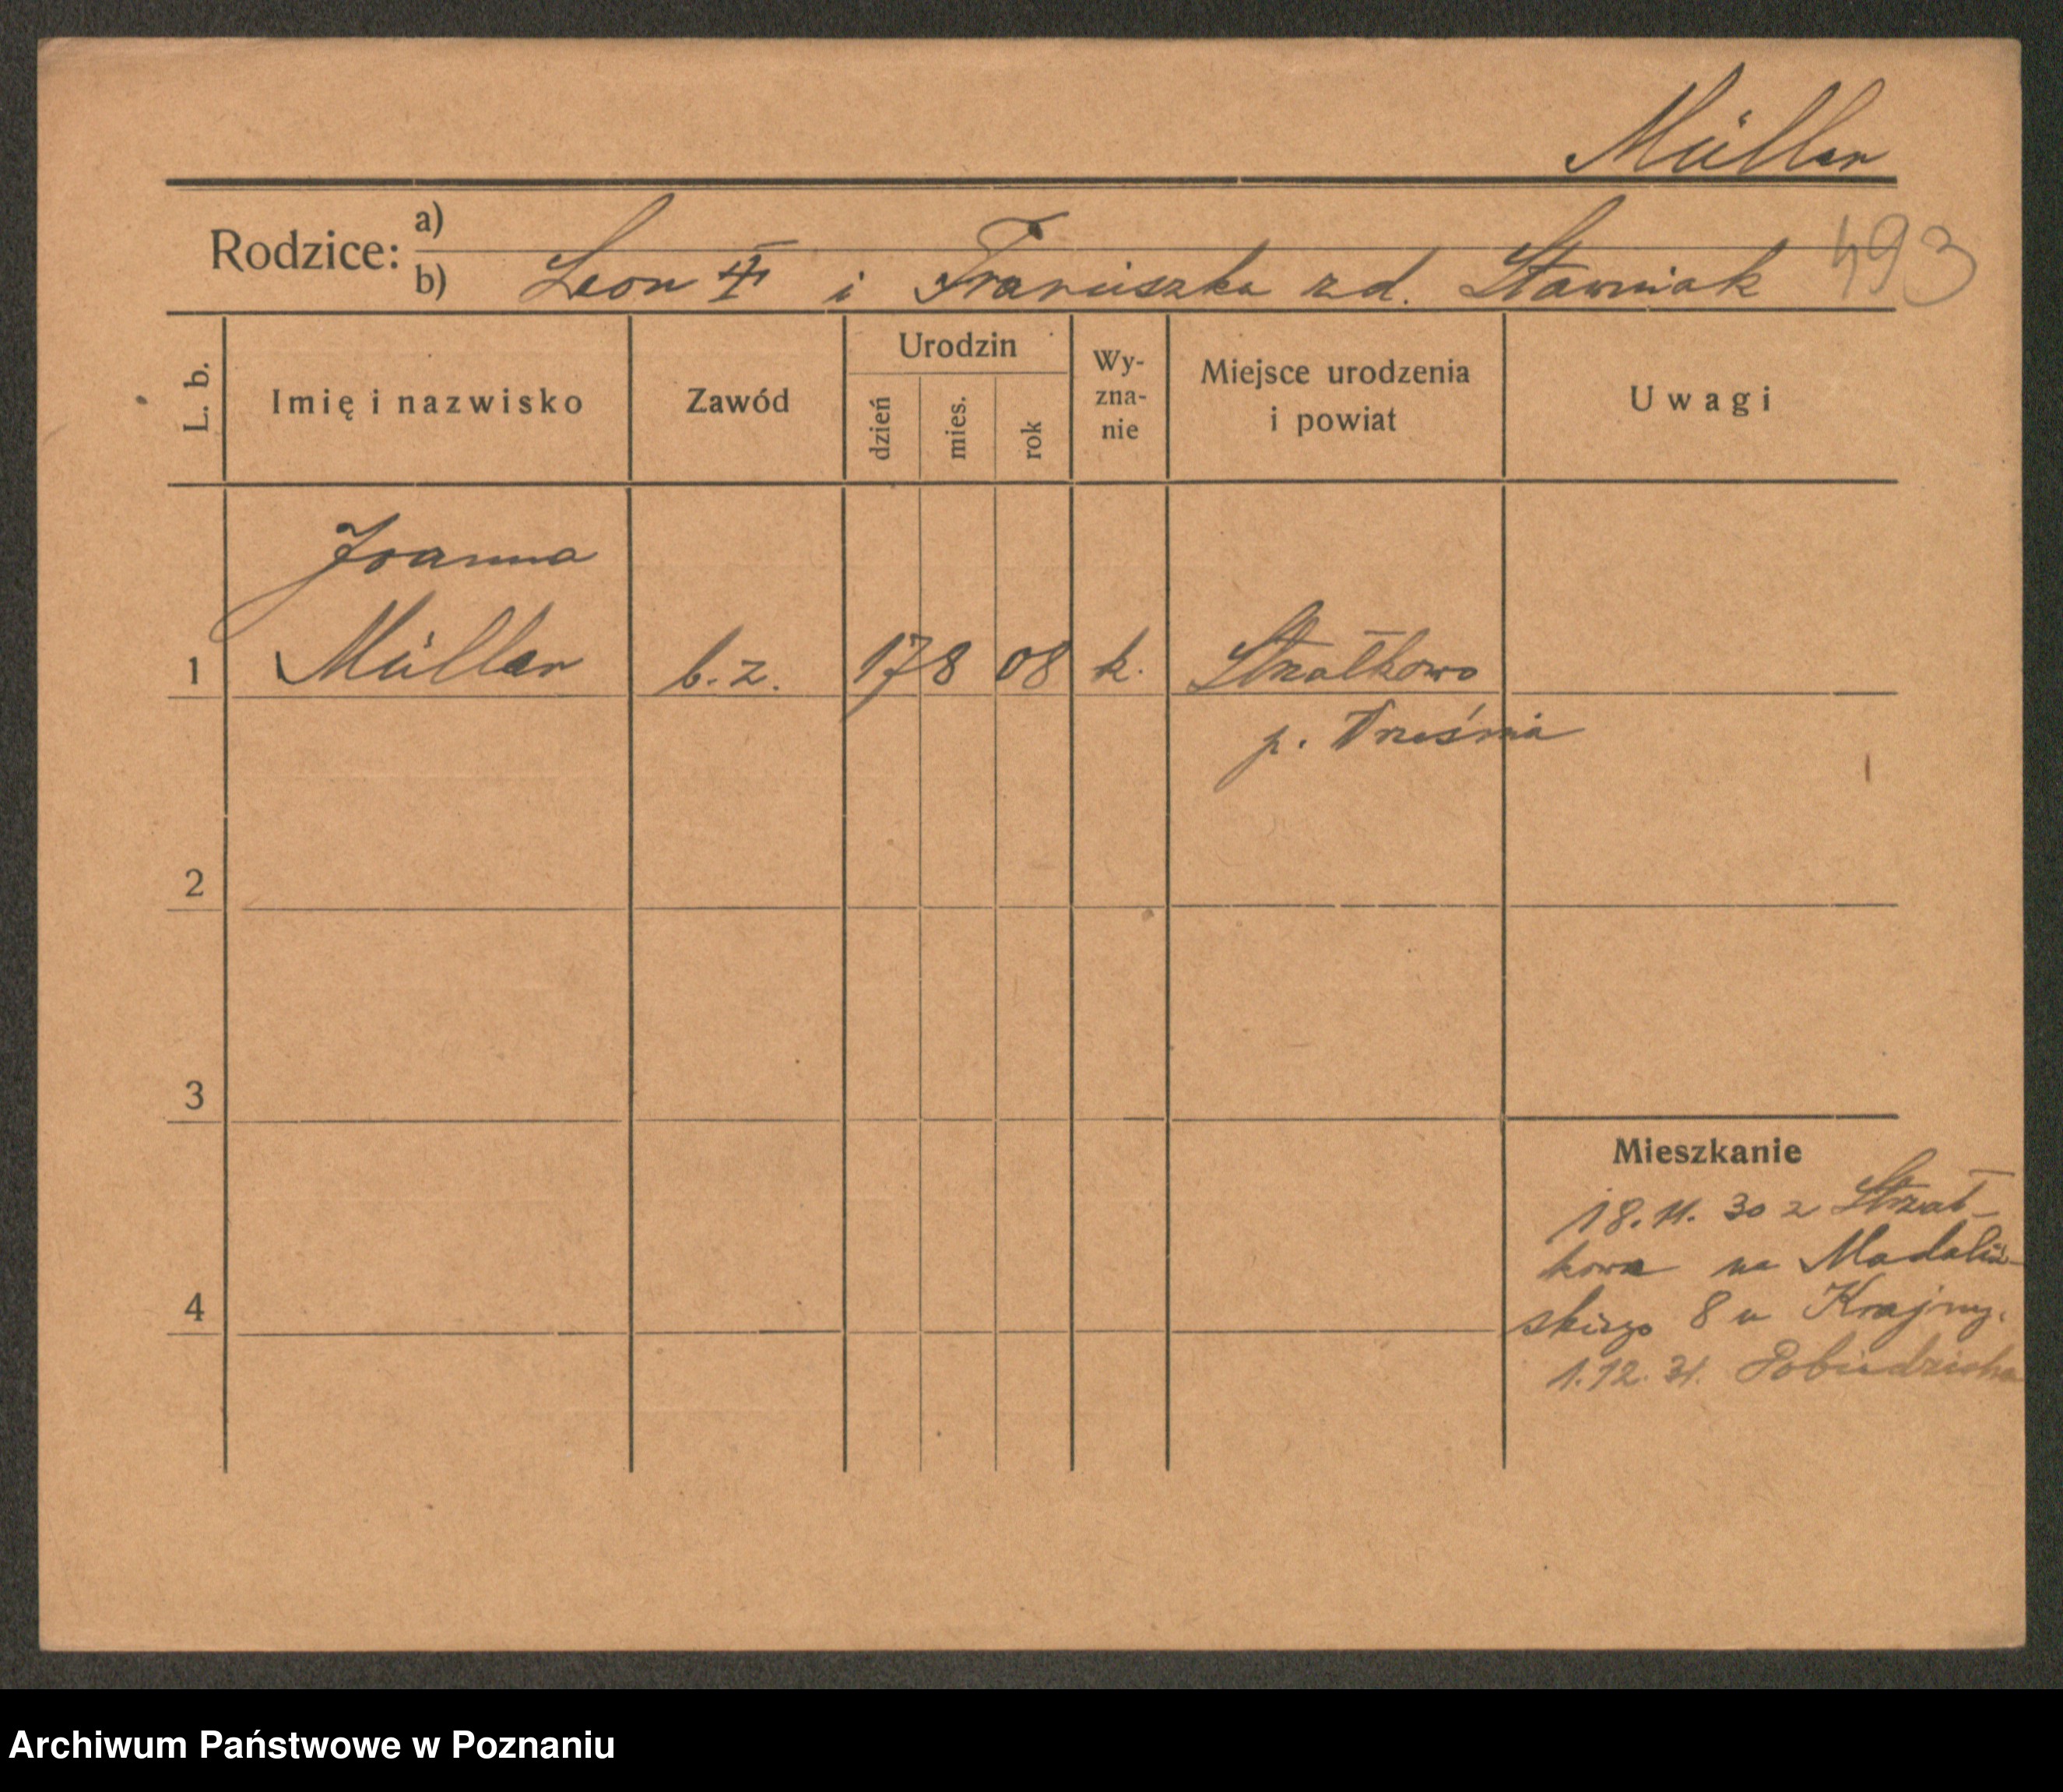 Müller
Rodzice: a)
b) Leon i Franciszka zd. Stawniak
493
L. b.
Imię i nazwisko
Zawód
Urodzin
dzień
mies.
rok
Wy-
zna-
nie
Miejsce urodzenia
i powiat
Uwagi
Joanna
1 Müller b.z. 17 8 08 k. Strzałkowo
p. Września
2
3
Mieszkanie
18.11.30 z Strzał-
kowa na Madaliń-
4
skiego 8 u Krajny.
1.12.31. Pobiedziska
Archiwum Państwowe w Poznaniu